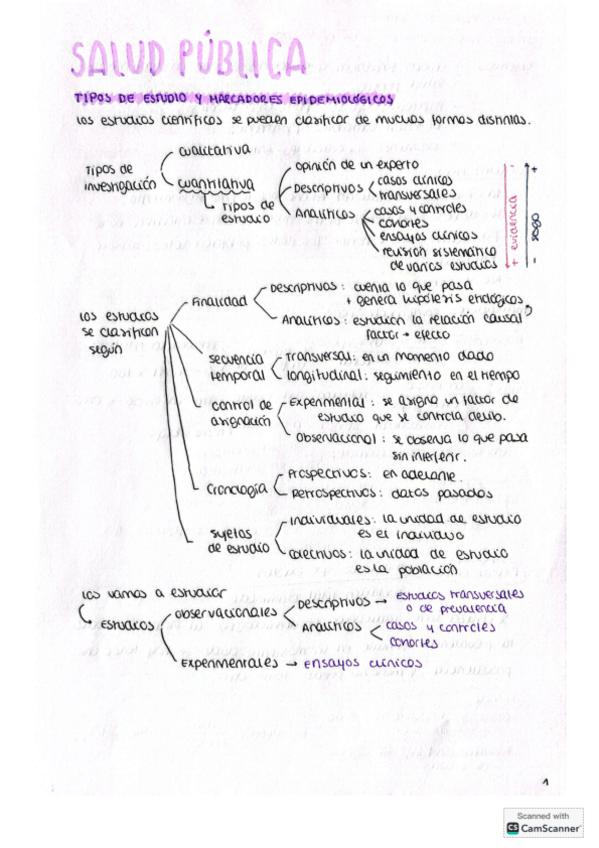 SALUD PÚBLICA
TIPOS DE ESTUDIO Y MARCADORES EPIDEMIOLÓGICOS
Los estudios científicos se pueden clasificar de muchas formas distintas.
Tipos de investigación
cualitativa
cuantitativa
tipos de estudio
opinión de un experto
Descriptivos
casos clínicos
transversales
Analíticos
casos y controles
cohortes
ensayos clínicos
revisión sistemático
de varios estudios
- + evidencia
+ - sesgo
Los estudios
se clasifican
según
Finalidad
Descriptivos: cuenta lo que pasa
+ genera hipótesis etiológicos
Analíticos: estudian la relación causal
factor → efecto
secuencia
temporal
Transversal: en un momento dado
longitudinal: seguimiento en el tiempo
control de
asignación
Experimental: se asigna un factor de
estudio que se controla delib.
Observacional: se observa lo que pasa
sin interferir.
Cronología
Prospectivos: en adelante.
Retrospectivos: datos pasados
sujetos
de estudio
Individuales: la unidad de estudio
es el individuo
Colectivos: la unidad de estudio
es la población
Los vamos a estudiar
Estudios
observacionales
Descriptivos → estudios transversales
o de prevalencia
Analíticos
casos y controles
cohortes
Experimentales → ensayos clínicos
1
Scanned with
CS CamScanner